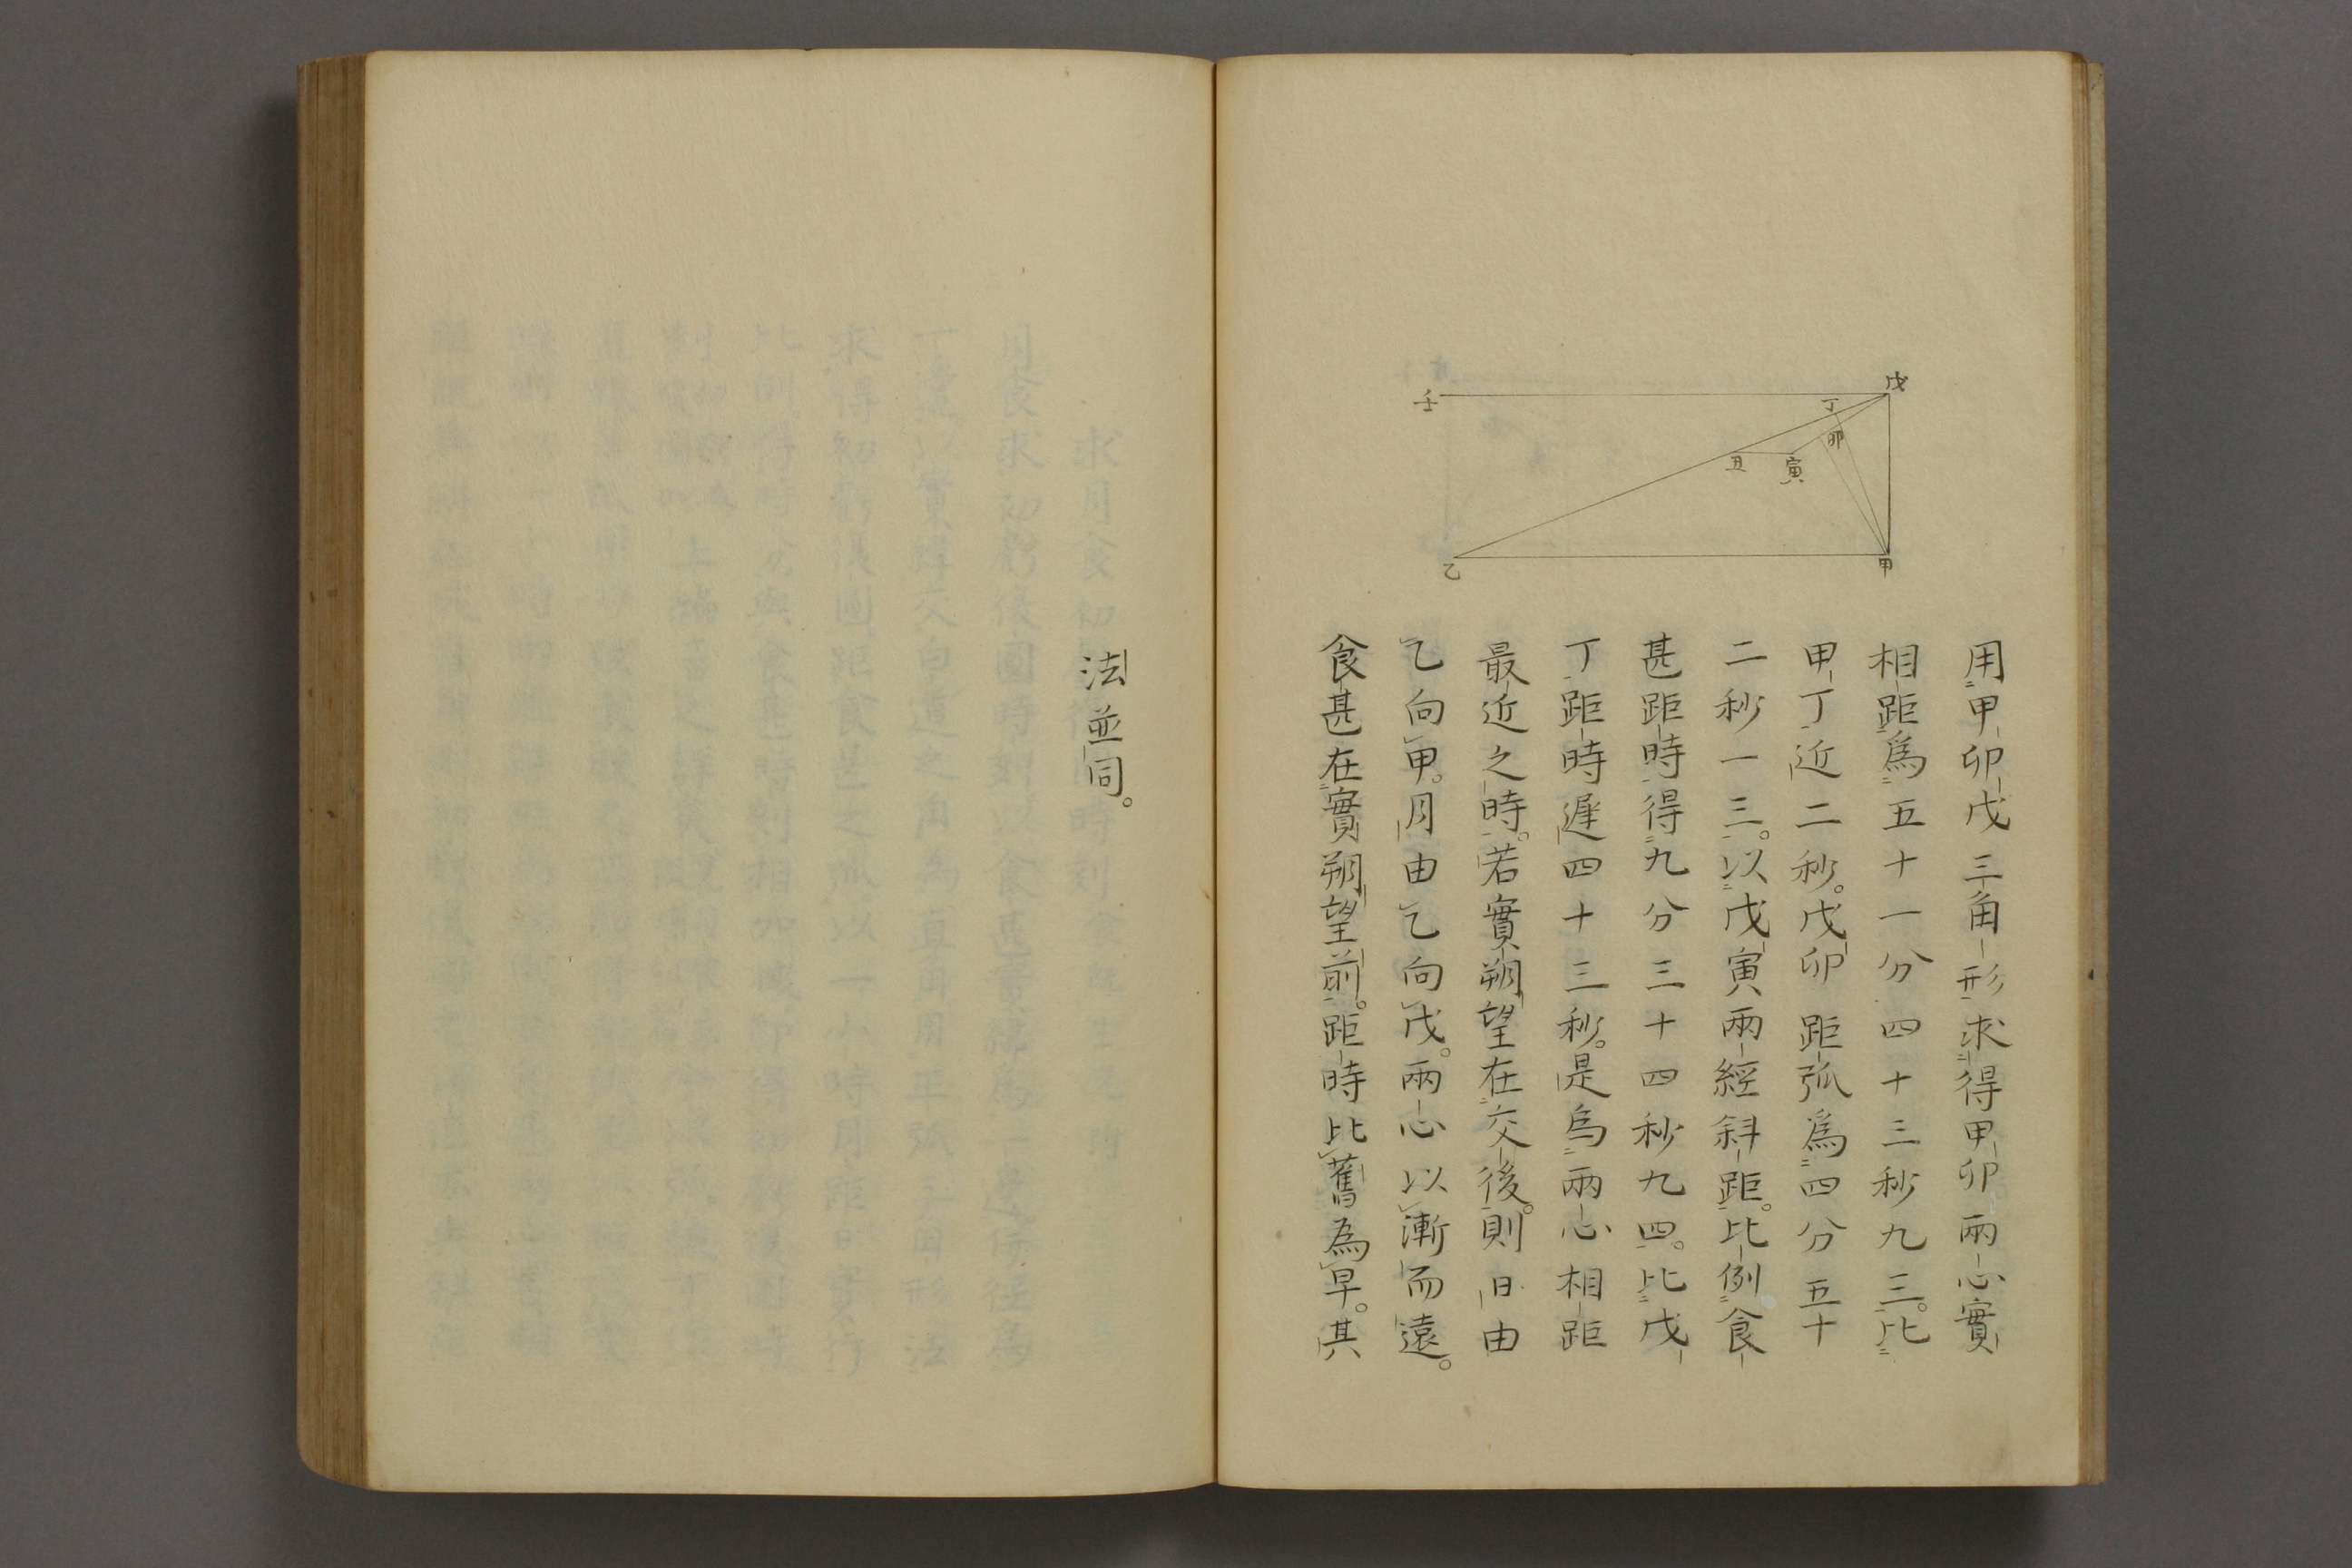 戊
壬
丁
卯
丑
寅
乙
甲
用甲卯戊三角形求得甲卯兩心實
相距爲五十一分四十三秒九三。比
甲丁近二秒。戊卯距弧爲四分五十
二秒一三。以戊寅兩經斜距。比例食
甚距時得九分三十四秒九四。比戊
丁距時遲四十三秒。是爲兩心相距
最近之時。若實朔望在交後。則日由
乙向甲。月由乙向戊。兩心以漸而遠。
食甚在實朔望前。距時比舊為早。其
法並同。